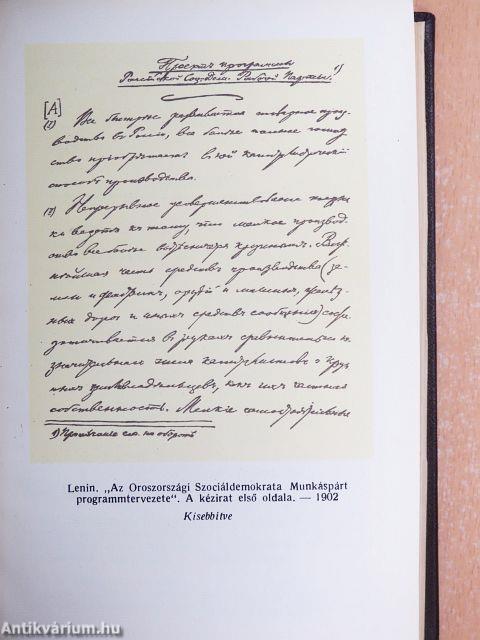 Проектъ программы
Россійской Соц.-дем. Рабочей Партіи. 1)
[A]
(1) Все быстрѣе развивается товарное произ-
водство въ Россіи, все болѣе полное господ-
ство пріобрѣтаетъ въ ней капиталистическій
способъ производства.
(2) Непрерывное усовершенствованіе техни-
ки ведетъ къ тому, что мелкое производ-
ство все болѣе вытѣсняется крупнымъ. Важ-
нѣйшая часть средствъ производства (зе-
мли и фабрикъ, орудій и машинъ, желѣз-
ныхъ дорогъ и иныхъ средствъ сообщенія) сосре-
доточивается въ рукахъ сравнительно не-
значительнаго числа капиталистовъ и круп-
ныхъ землевладѣльцевъ, какъ ихъ частная
собственность. Мелкіе самостоятельные
1) Примѣчаніе см. на оборотѣ
Lenin. „Az Oroszországi Szociáldemokrata Munkáspárt
programmtervezete“. A kézirat első oldala. — 1902
Kisebbítve
Antikvárium.hu